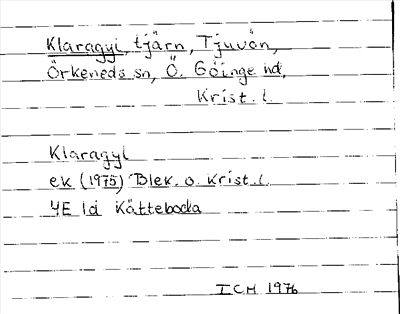 Klaragyl, tjärn, Tjuvön,
Örkeneds sn, Ö. Göinge hd,
Krist. l.
Klaragyl
ek (1975) Blek. o. Krist. l.
4E 1d Kätteboda
ICH 1976